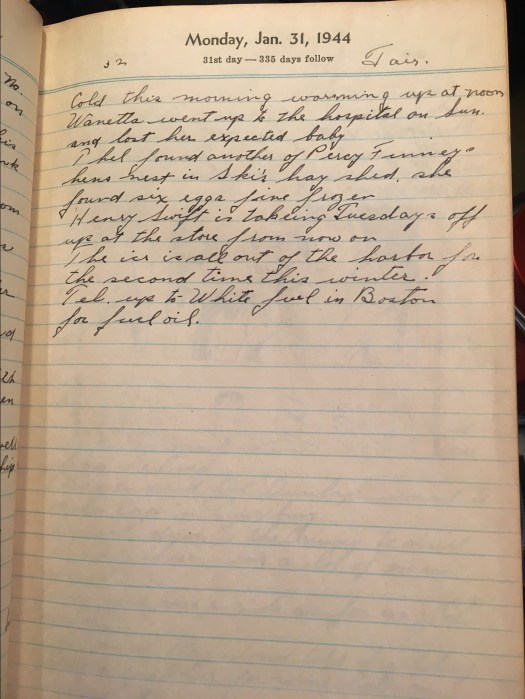 No.
on
his
rk
om
s
er
d
en
well
hip
Monday, Jan. 31, 1944
32 31st day — 335 days follow Fair.
Cold this morning warming up at noon
Wanetta went up to the hospital on Sun.
and lost her expected baby
Phel found another of Percy Finneys
hens nest in Skis hay shed, she
found six eggs fine frozen
Henry Swift is takeing Tuesdays off
up at the store from now on
The ice is all out of the harbor for
the second time this winter.
Tel. up to White fuel in Boston
for fuel oil.